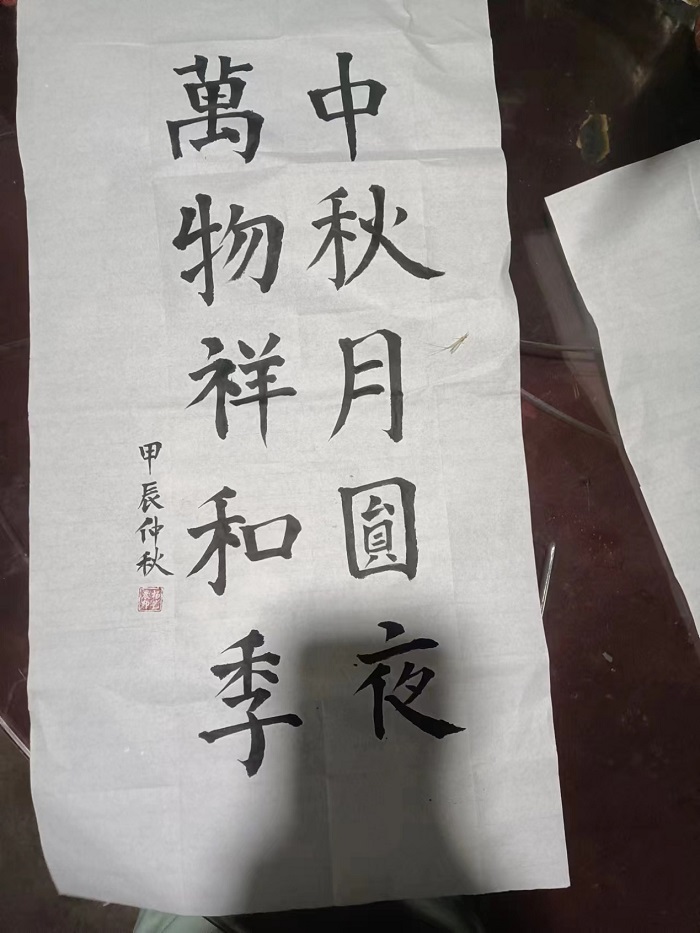 中秋月圓夜
萬物祥和季
甲辰仲秋